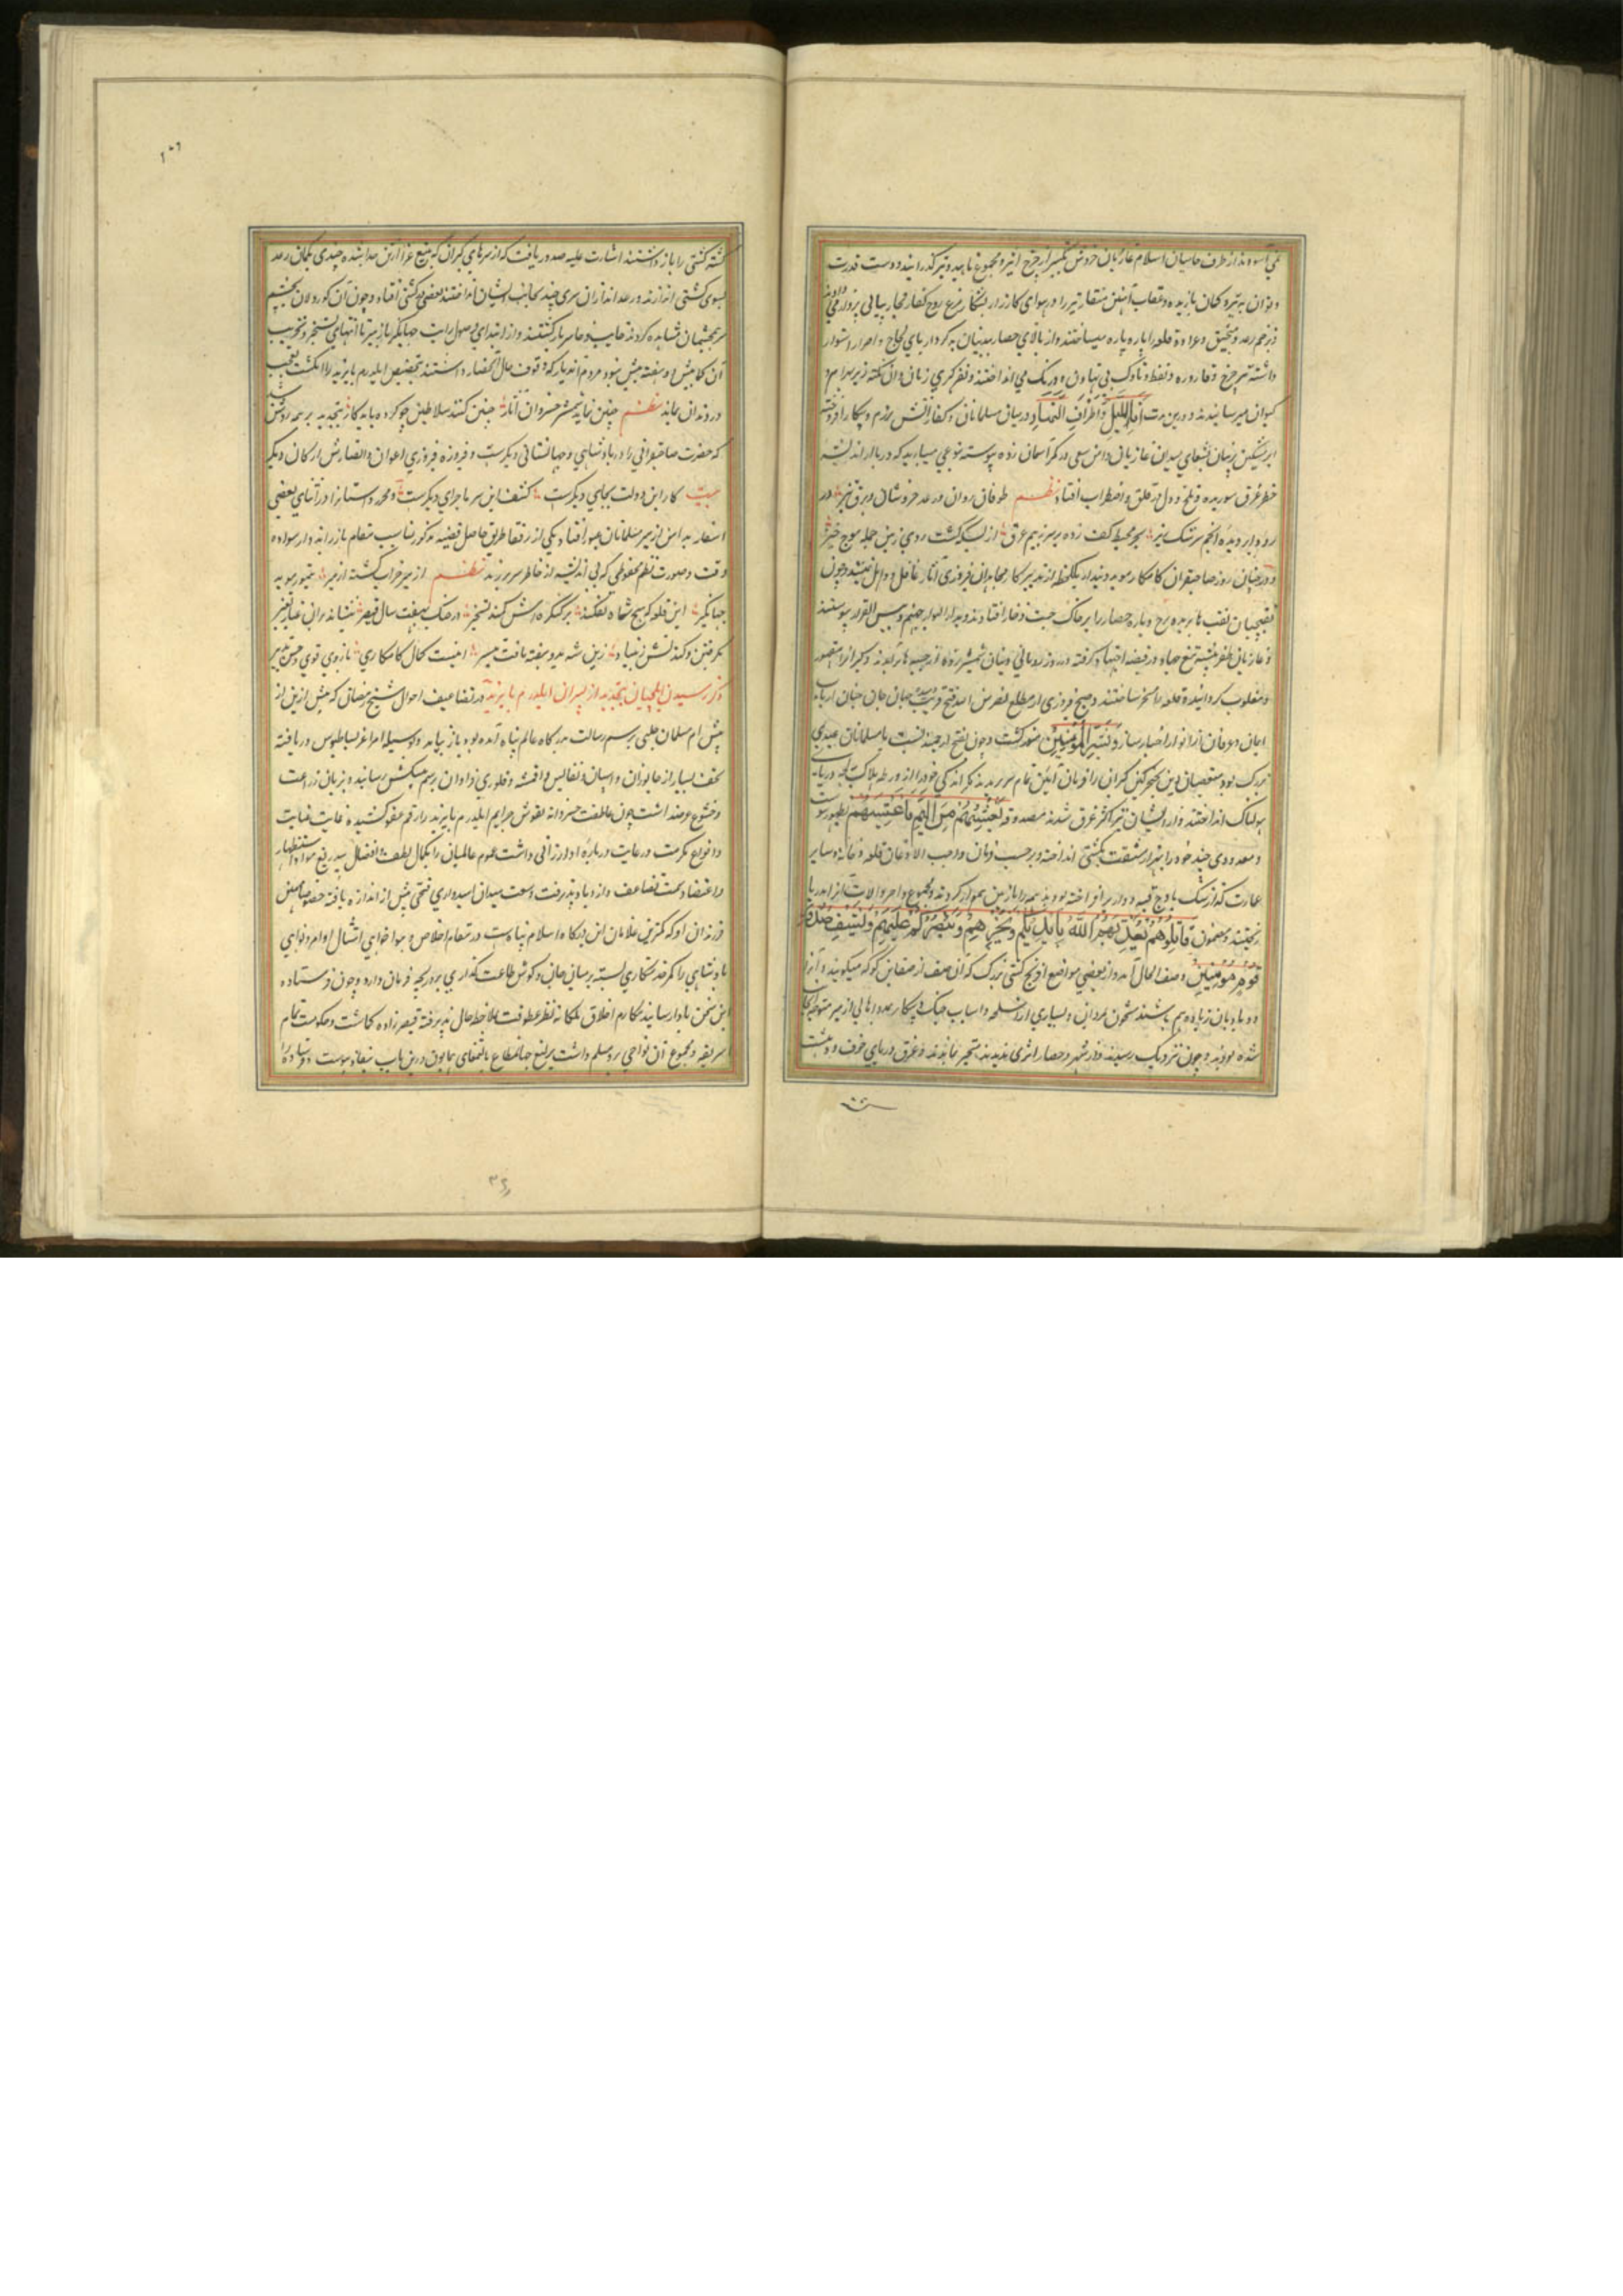 نمی آسودند از طرف حامیان اسلام غازیان خروش تکبیر از چرخ اثیر و مجمع ناهید و تیر گذرانیدند و دست قدرت
و توان به تیر و کمان یازیده عقاب آهنین منقار تیر را در هوای کارزار بشکار مرغ روح کفار فجار پیاپی پرواز می دادند
و بزخم رعد و منجنیق و عراده قلعه را پاره پاره میساختند و از بالای حصار بیدینان بدکردار پای لجاج و اصرار استوار
داشته تیر چرخ و قاروره و نفط و ناوک بی تهاون و درنگ می انداختند و نفر کبری زبان
کیوان میرسانیدند و درین مدت آناء اللیل و اطراف النهار در میان مسلمانان و کفار آتش رزم و پیکار افروخته
ابر مشکین
خطر غرق بوده و قلق و اضطراب افتاد نظم طوفان روان و رعد خروشان و برق تیز در
رود ابر دیده انجم سرشک ریز بحر محیط کف زده بر سر ز بیم غرق از بسکه گشت روی زمین جمله موج خیز
و در چنان روز صاحبقران کامکار موید دیندار یک لحظه از تدبیر کار مجاهدان فیروزی آثار غافل و ذاهل نمیشد و چون
نقبچیان نقب ها بریده برج و باره حصار را بر خاک خبث و خار افتادند و بدار البوار جهنم و بئس القرار پیوستند
و غازیان ظفر پیشه تیغ جهاد در قبضه اجتهاد گرفته
و مغلوب گردانیده قلعه را مسخر ساختند و صبح فیروزی از مطلع نصر من الله و فتح قریب جهان جان جهان ارباب
ایمان و عرفان را از انوار اخبار سار و بشر المؤمنین منور گشت و چون بفتح
بزرگ بود متعصبان دین بخنجر کین گبران را فرمان آیین تمام سر بریدند مگر اندکی خود را از ورطه هلاکت بلجه دریای
هولناک انداختند و از ایشان نیز اکثر غرق شدند مصدوقه فغشیهم من الیم ما غشیهم بظهور پیوست
و معدودی چند خود را بهزار مشقت بکشتی انداخته و بر حسب فرمان واجب الاذعان قلعه و خانه و سایر
عمارت که از سنگ باوج قبه دوار برافراخته بودند همه را با زمین هموار کردند و مجموع و آلات آنرا در دریا
ریختند و مضمون قاتلوهم یعذبهم الله بایدیکم و یخزهم و ینصرکم علیهم و یشف صدور
قوم مؤمنین وصف الحال آمد و از بعضی مواضع افرنج کشتی بزرگ که آن صنف از سفاین کوکه میگویند و آنرا
دو بادبان زیاده هم باشند مشحون بمردان و بسیاری از اسلحه و اسباب جنگ و پیکار بمدد اهالی ازمیر متوجه آنجا
شده بودند و چون نزدیک رسیدند و از شهر و حصار اثری ندیدند متحیر ماندند و غرق دریای خوف و دهشت
گشته کشتی را باز داشتند اشارت علیه صدور یافت که از سرهای گبران که بتیغ غزا از تن جدا شده چندی بکمان رعد
بسوی کشتی اندازند و رعد اندازان سری چند بجانب ایشان انداختند بعضی در کشتی افتاد و چون آن کوردلان بچشم
سر بچشمان مشاهده کردند خایب و خاسر باز گشتند و از ابتدای وصول رایت جهانگیر بازمیر تا انتهای تسخیر و تخریب
آن کما بیش دو هفته بیش نبود مردم آن دیار که وقوف بر حال آن حصار داشتند بتخصیص ایلدرم بایزید را انگشت تعجب
در دندان بماند نظم چنین نماید شمشیر خسروان آثار چنین کنند سلاطین چو کرده باید کار بتجدید بر همه روشن شد
که حضرت صاحبقرانی را در پادشاهی و جهانستانی دیگرست و فیروزه فیروزی اعوان و انصارش از کان دیگر
بیت کار این دولت بجایی دیگرست کشف این سر ماجرای دیگرست و محرر داستانرا در اثنای بعضی
اسفار به ازمیر مسلمانان عبور افتاد و یکی از رفقا طریق حاصل قضیه مذکور مناسب مقام باز راند و از سواده
وقت و صورت نظم محفوظی که بی اندیشه از خاطر سر برزند نظم ازمیر خراب گشته از میر تیمور موید
جهانگیر این قلعه که هیچ شاه نفکند بر کنگره اش کمند تسخیر در جنگ بهفت سال قیصر ننشاند بر آن غبار تغییر
بگرفتن و کندنش ز بنیاد زین شه بدو هفته یافت تیسیر اینست کمال کامکاری بازوی قوی و حسن تدبیر
ذکر رسیدن ایلچیان بتجدید از پسران ایلدرم بایزید در تضاعیف احوال شیخ رمضان که پیش ازین از
پیش ام مسلمان چلبی برسم رسالت بدرگاه عالم پناه آمده بود باز بیامد و بوسیله امرا عز بساط بوس دریافته
تحف بسیار از جانوران و اسبان و نفایس و اقمشه و فلوری فراوان برسم پیشکش رسانید و بزبان ضراعت
و خشوع عرضه داشت چون عاطفت خسروانه نقوش جرایم ایلدرم بایزید را رقم عفو کشید و غایت عنایت
و انواع مکرمت و رعایت درباره او ارزانی داشت عموم عالمیان را بکمال لطفت و افضال بیدریغ مواد استظهار
و اعتضاد سمت تضاعف و ازدیاد پذیرفت و سعت میدان امیدواری فتحی بیش از اندازه یافته خصوصا بعض
فرزندان او که کمترین غلامان این درگاه اسلام پناه است در مقام اخلاص و هواخواهی امتثال اوامر و نواهی
پادشاهی را کمر خدمتکاری بسته بر میان جان و گوش طاعت گذاری بر دریچه فرمان دارد و چون فرستاده
این سخن بادا رسانید مکارم اخلاق ملکانه نظر عطوفت بملاحظه حال پذیرفته قیصر زاده گماشت و حکومت تمام
اسریقه و مجموع آن نواحی برو مسلم داشت یرلیغ جهان مطاع بالتمغای همایون درین باب بنفاذ پیوست و فرستاده را